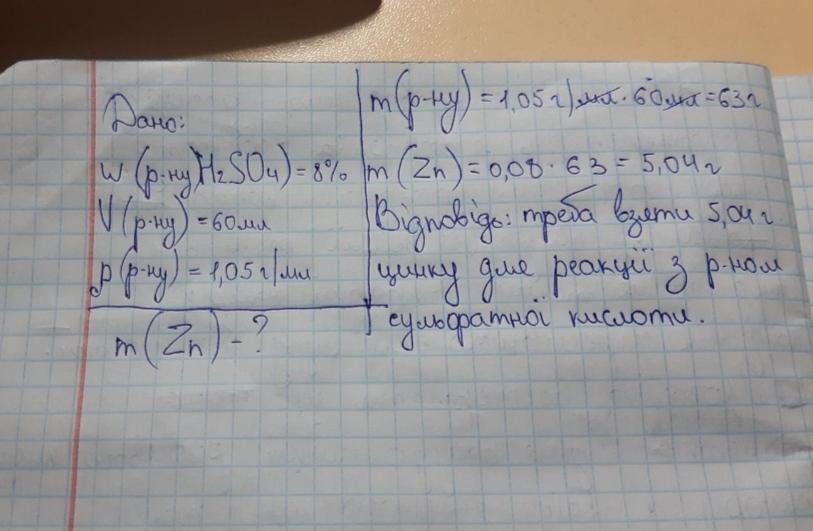 Дано:
w(р-ну)H₂SO₄) = 8%
V(р-ну) = 60мл
ρ(р-ну) = 1,05 г/мл
m(Zn) - ?
m(р-ну) = 1,05 г/мл · 60мл = 63г
m(Zn) = 0,08 · 63 = 5,04г
Відповідь: треба взяти 5,04г
цинку для реакції з р-ном
сульфатної кислоти.